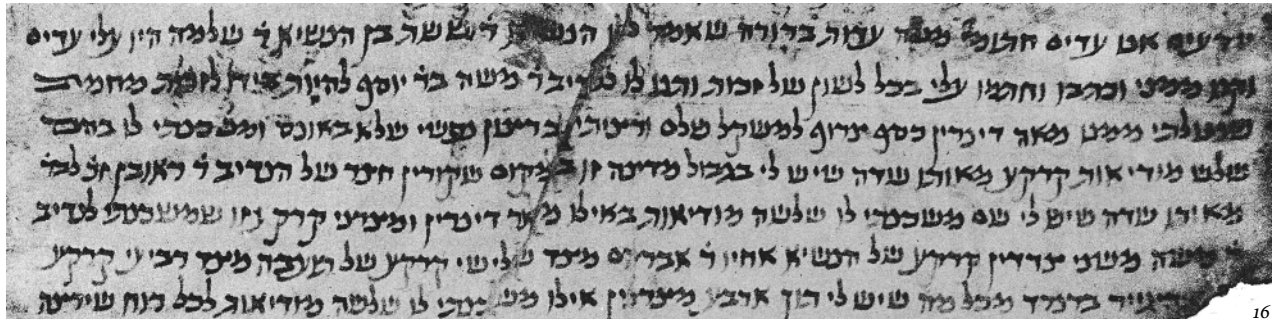 עדים חתומי מטה עדות ברורה שאמר לנו הנשיא ר ששת בן הנשיא ר שלמה היו עלי עדים
וקנו ממני וכתבו וחתמו עלי בכל לשון של זכות ותנו לו לנדיב ר משה בר יוסף להיות בידו לזכות מחמת
שנטלתי ממנו מאה דינרין כסף צרוף למשקל שלם ורציתי ברצון נפשי שלא באונס ומשכנתי לו בהם
שלש מודיאות קרקע מאותו שדה שיש לי בגבול מדינה זו במקום שקורין של הנדיב ר ראובן
שדה שיש לי שם משכנתי לו שלשה מודיאות באילו מאה דינרין ומצרני קרקע זו שמשכנתי לנדיב
ר משה משני צדדין קרקע של הנשיא אחיו ר אברהם מצד שלישי קרקע של מצד רביעי קרקע
מכל מה שיש לי תוך ארבע מצרנין אילו משכנתי לו שלשה מודיאות לכל כוח שירצה
16